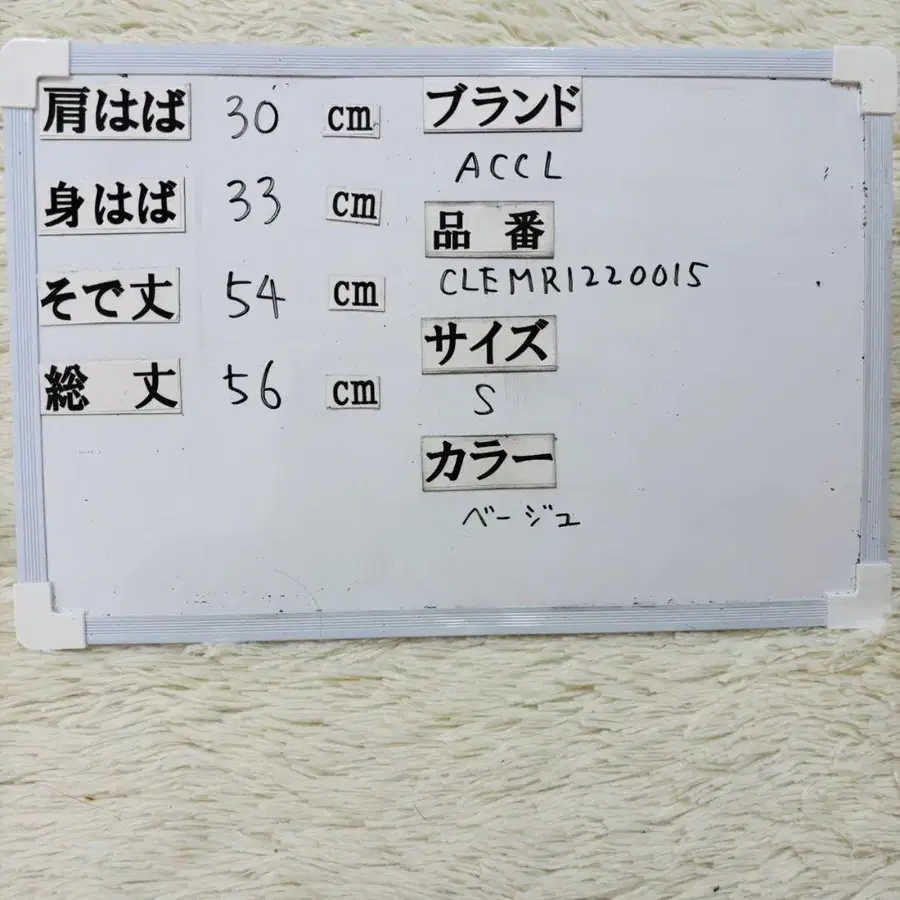 肩はば 30 cm
身はば 33 cm
そで丈 54 cm
総 丈 56 cm
ブランド
ACCL
品 番
CLEMR1220015
サイズ
S
カラー
ベージュ